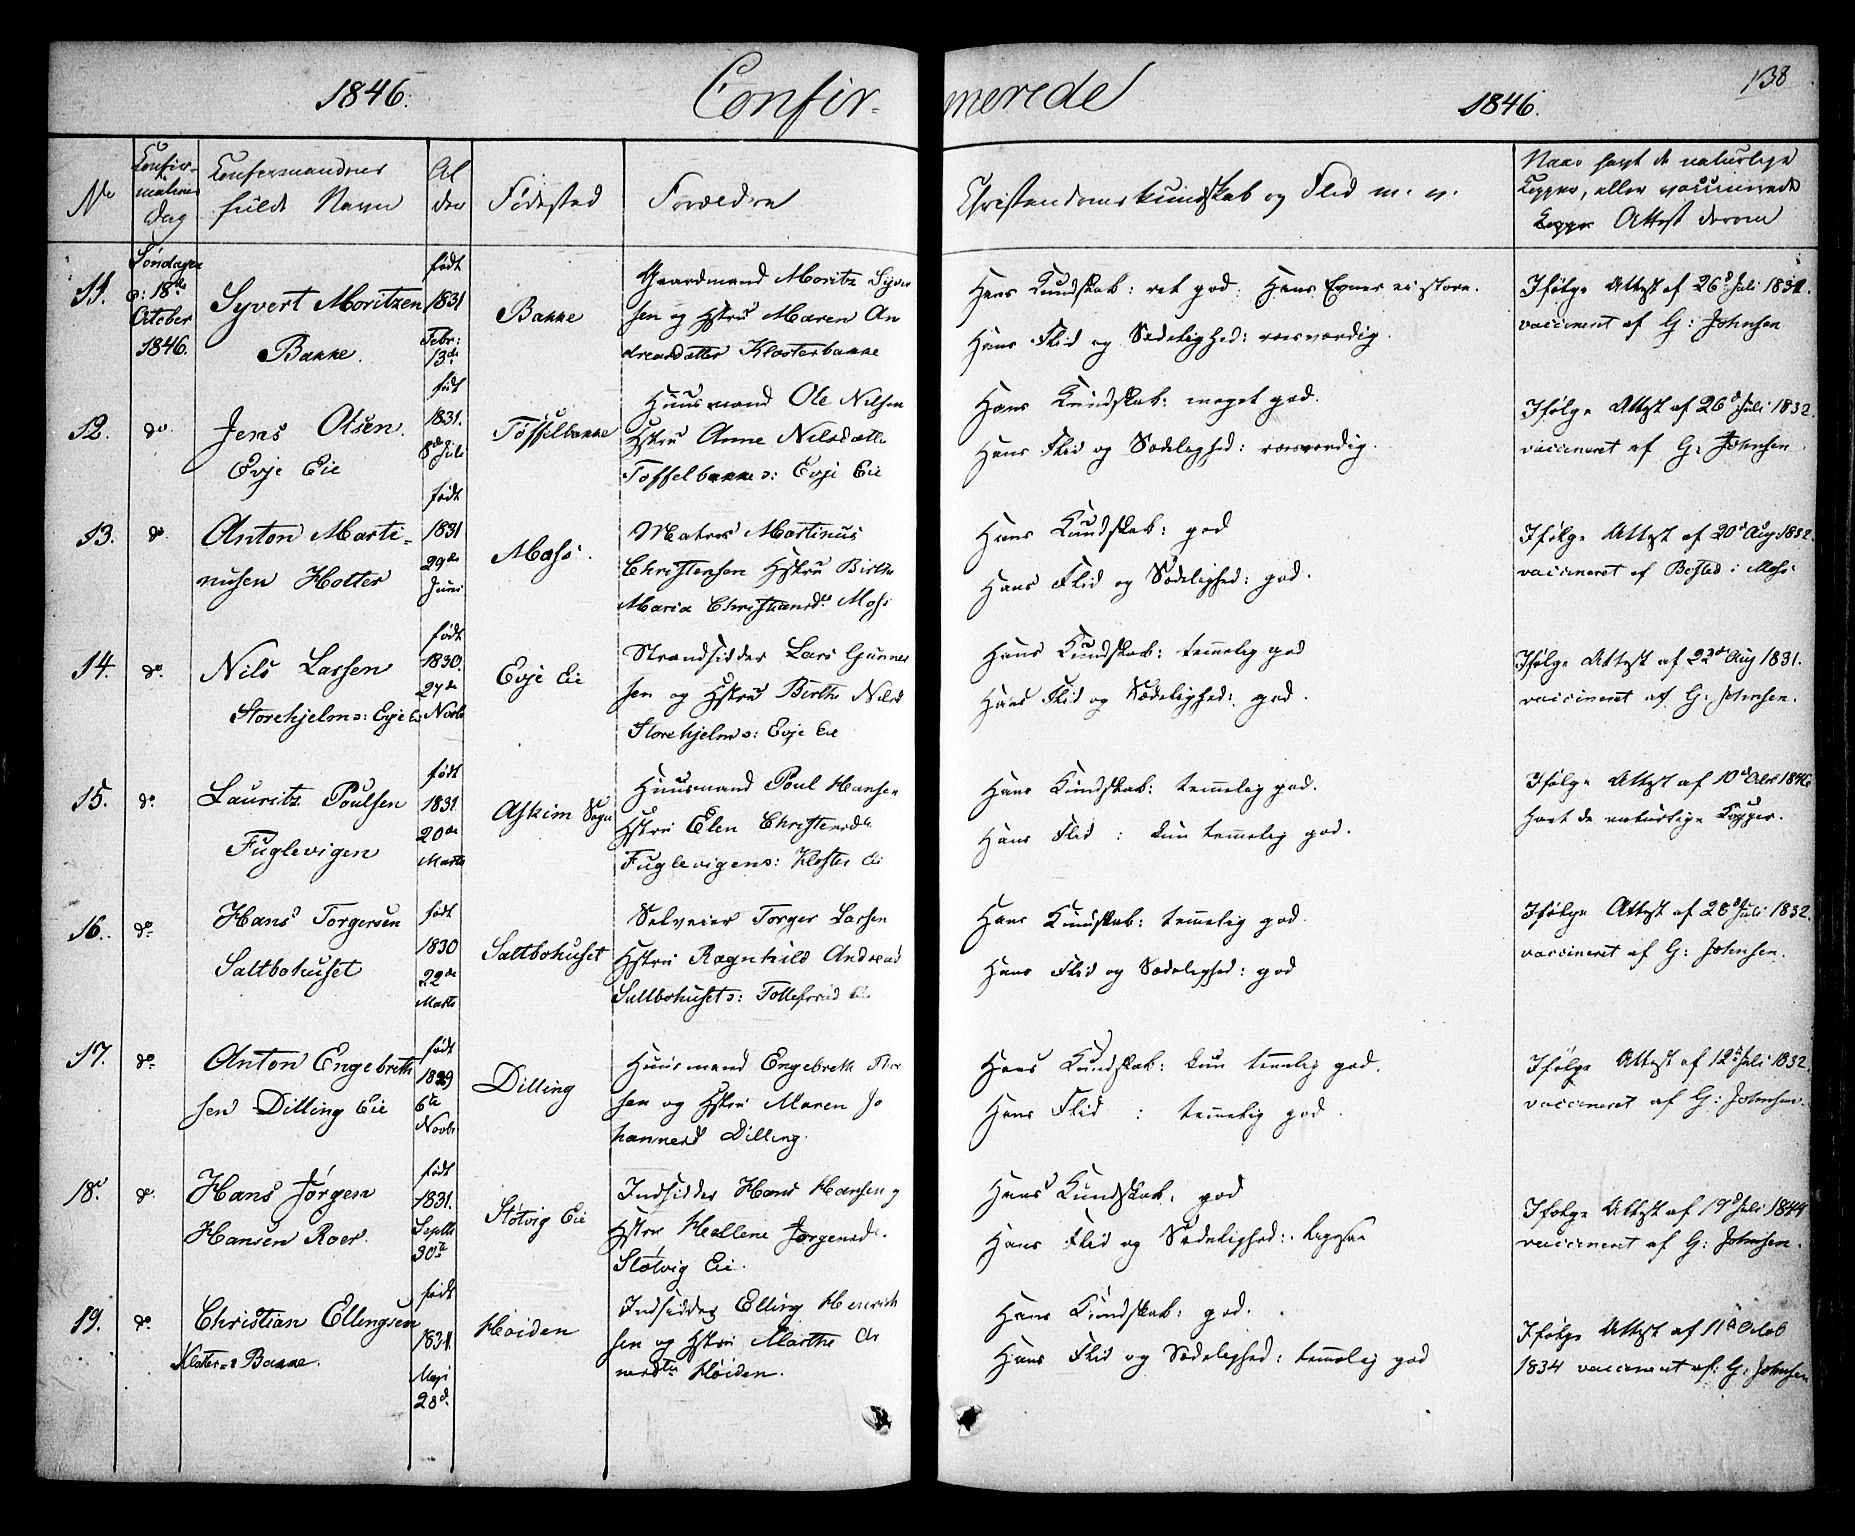 1846.
Confir-
merede
1846.
138
No
Confirmations Dag
Confirmandens fulde Navn
Alder
Fødested
Forældre
Christendomskundskab og Flid m. v.
Naar havt de naturlige
Kopper, eller vaccinerede
Kopper Attest derom
11.
Søndagen
d: 18de
October
1846.
Syvert Moritzen
Bakke.
født
1831
Febr:
13de
Bakke
Gaardmand Moritz Syver
sen og Hstru Maren An
dreasdatter Klosterbakke
Hans Kundskab: ret god. Hans Evner ei store.
Hans Flid og Sædelighed: roesværdig.
Ifølge Attest af 26d Juli 1831.
vaccineret af G: Johnsen
12.
do
Jens Olsen.
Evje Eie
født
1831.
8de Juli
Tøffelbakke
Huusmand Ole Nilsen
Hstru Anne Nilsdatte
Toffelbakke s: Evje Eie
Hans Kundskab: meget god.
Hans Flid og Sædelighed: roesværdig.
Ifølge Attest af 26d Juli 1832.
vaccineret af G: Johnsen
13.
do.
Anton Marti-
nusen Holter
født
1831
29de
Juni
Moss.
Matros Martinus
Christensen Hstru Birthe
Maria Christiansdr Moss
Hans Kundskab: god
Hans Flid og Sædelighed: god.
Ifølge Attest af 20d Aug 1832.
vaccineret af Bisted i Moss
14.
do.
Nils Larsen
Storehjelm s: Evje Eie
født
1830.
27de
Novbr
Evje Eie
Strandsidder Lars Gunner
sen og Hstru Birthe Nilsd
Storehjelm s: Evje Eie
Hans Kundskab: temmelig god
Hans Flid og Sædelighed: god.
Ifølge Attest af 22de Aug 1831.
vaccineret af G: Johnsen.
15.
do.
Lauritz Poulsen
Fuglevigen
født
1831
20de
Marts
Askim Sogn
Huusmand Poul Hansen
Hstru Elen Christensdr
Fuglevigen s: Kloster Eie
Hans Kundskab: temmelig god.
Hans Flid : kun temmelig god.
Ifølge Attest af 10d 1846
havt de naturlige Kopper.
16.
do.
Hans Torgersen
Saltbohuset
født
1830
22de
Marts
Saltbohuset
Selveier Torger Larsen
Hstru Ragnhild Andreasd
Saltbohuset s: Eie
Hans Kundskab: temmelig god.
Hans Flid og Sædelighed: god
Ifølge Attest af 26d Juli 1832.
vaccineret af G: Johnsen.
17.
do.
Anton Engebreth
sen Dilling Eie
født
1829
6te
Novbr
Dilling
Huusmand Engebreth Thor
sen og Hstru Maren Jo
hannesd Dilling.
Hans Kundskab: kun temmelig god.
Hans Flid : temmelig god.
Ifølge Attest af 12te Juli 1832.
vaccineret af G: Johnsen.
18.
do.
Hans Jørgen
Hansen Roer.
født
1831.
Septbr
30te
Støtvig Eie
Indsidder Hans Hansen og
Hstru Hellene Jørgensd.
Støtvig Eie.
Hans Kundskab. god
Hans Flid og Sædelighed:
Ifølge Attest af 19d Juli 1844
vaccineret af G: Johnsen.
19.
do.
Christian Ellingsen
Kloster Bakke.
født
1831.
Maji
28d.
Høiden
Indsidder Elling Henrich
sen og Hstru Marthe Ar
nesdtr Høiden.
Hans Kundskab: god.
Hans Flid og Sædelighed: temmelig god
Ifølge Attest af 11te Octob
1834 vaccineret af: G: Johnsen